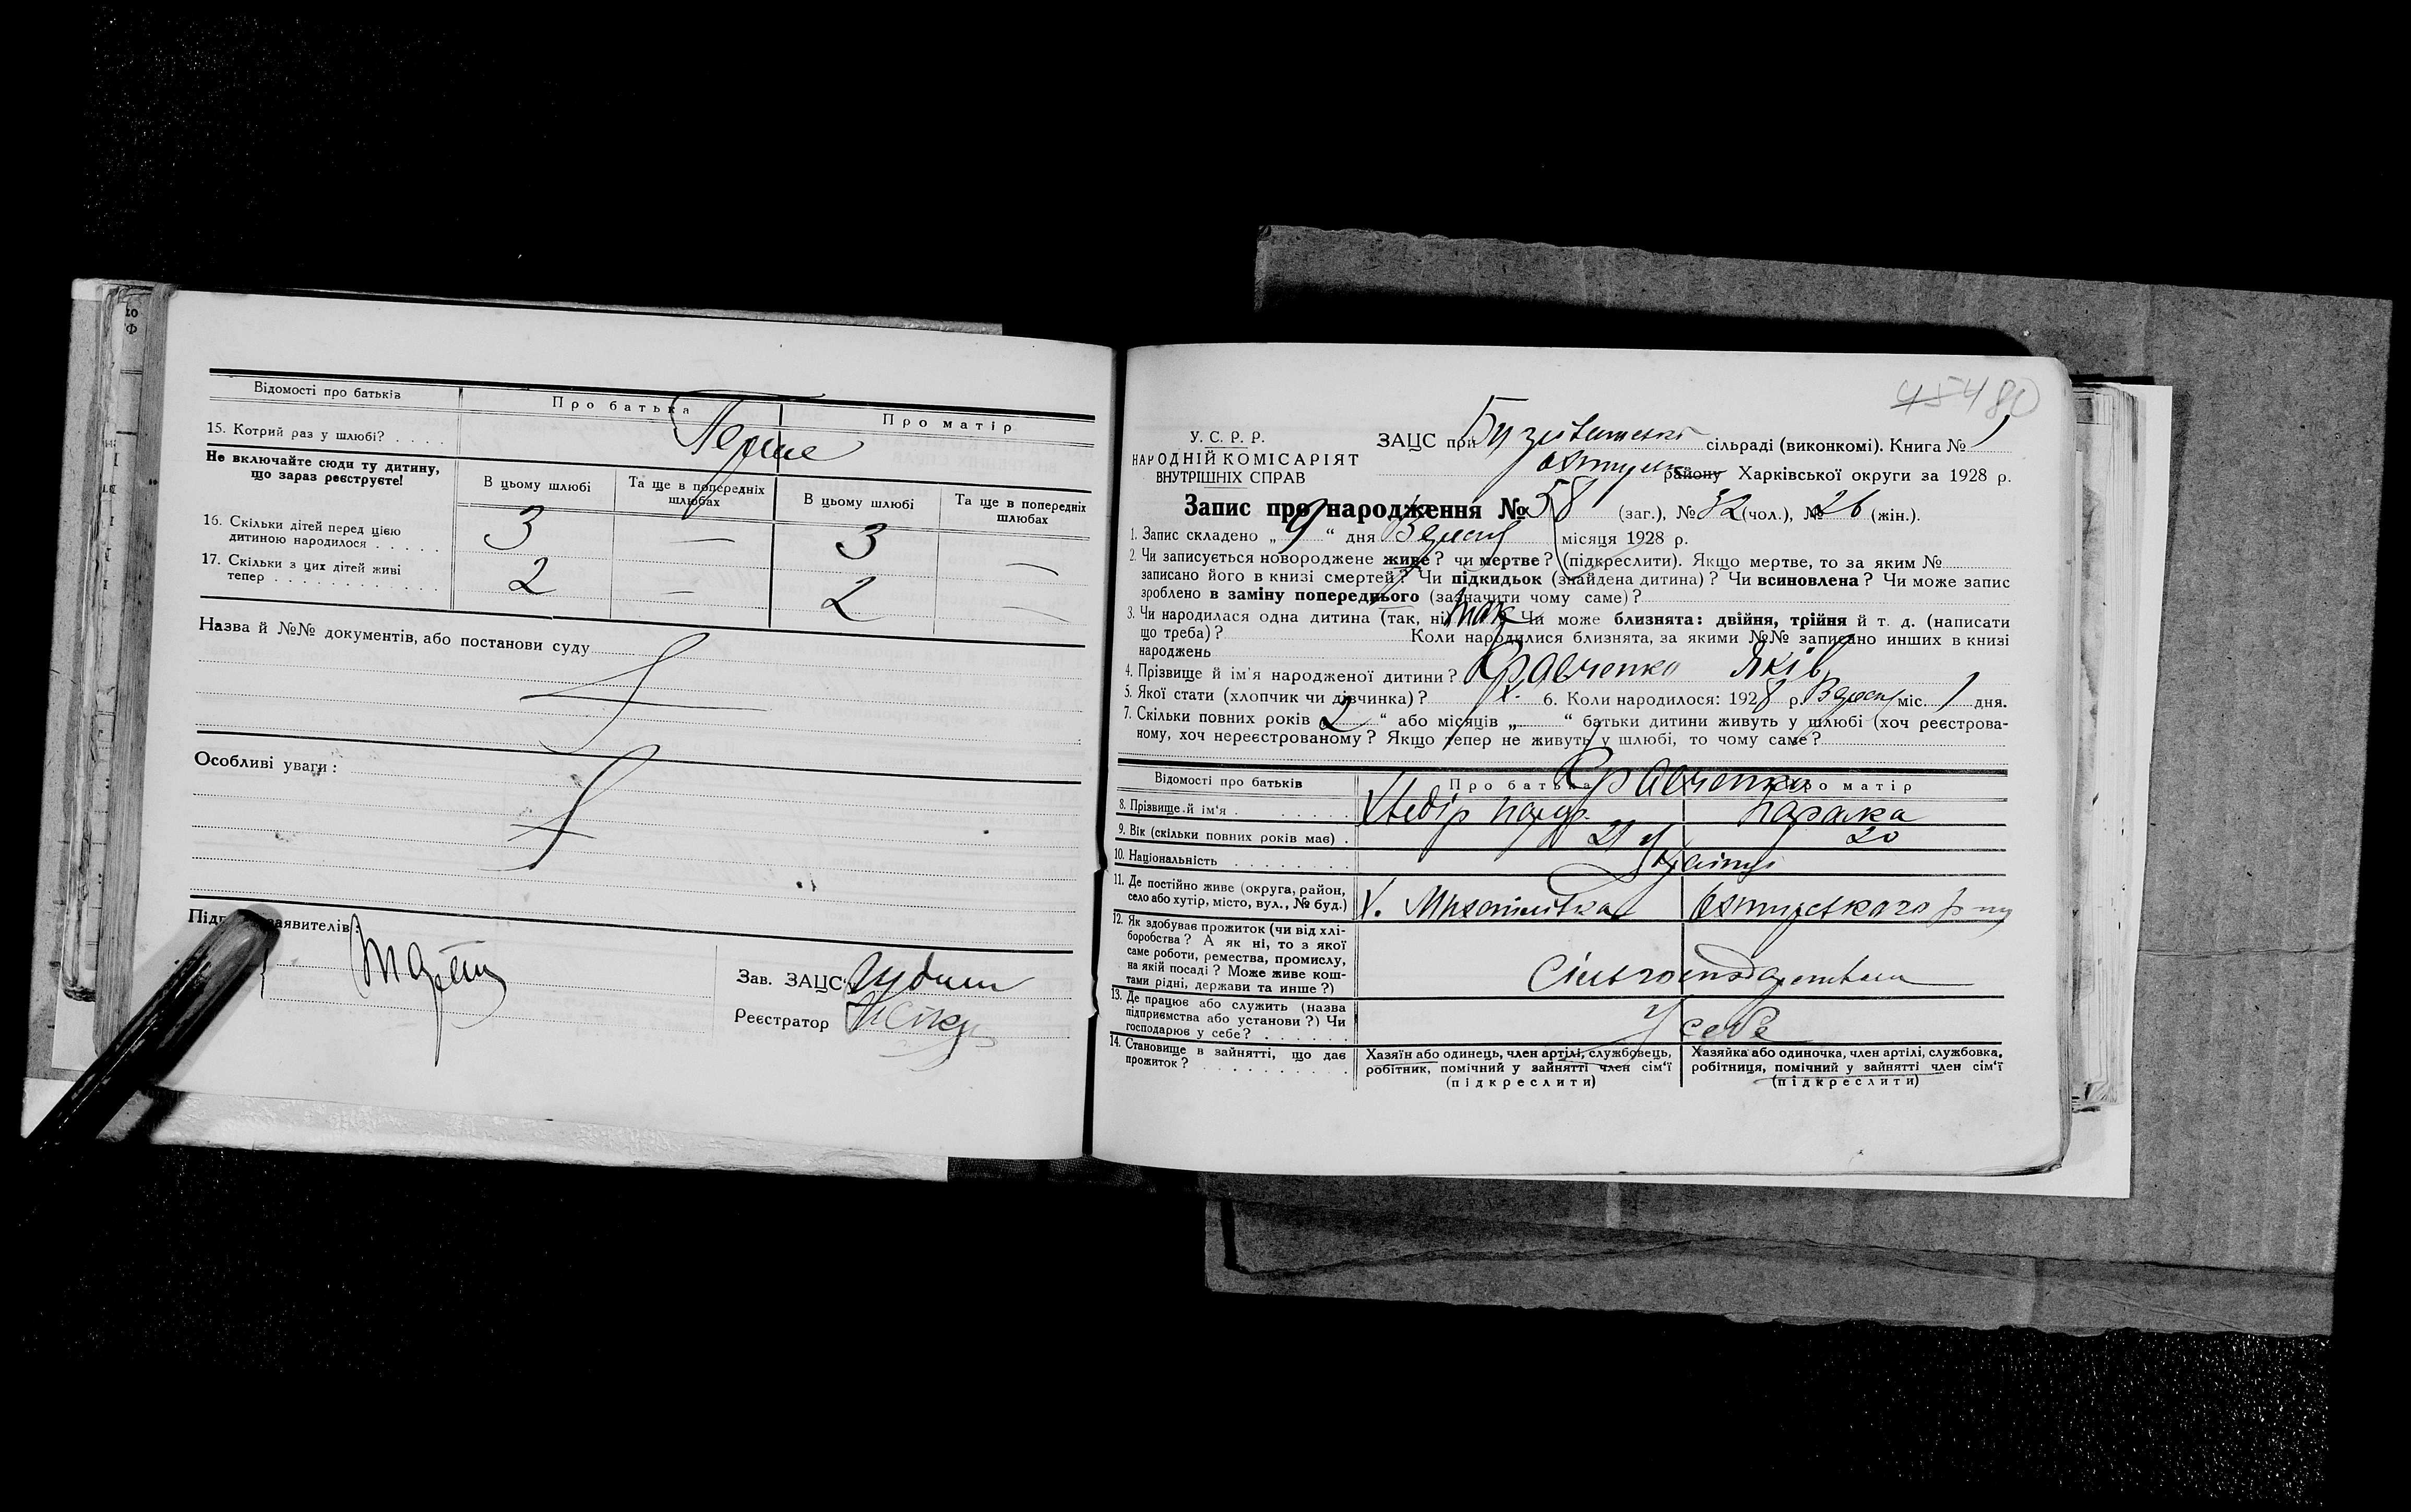 Відомості про батьків
Про батька
Про матір
15. Котрий раз у шлюбі? . . . .
Перше
Не включайте сюди ту дитину,
що зараз реєструєте!
В цьому шлюбі
Та ще в попередніх
шлюбах
В цьому шлюбі
Та ще в попередніх
шлюбах
16. Скільки дітей перед цією
дитиною народилося . . . . .
3 — 3 —
17. Скільки з цих дітей живі
тепер . . . . . . . . . . .
2 — 2 —
Назва й №№ документів, або постанови суду
Особливі уваги:
Підп заявителів:
Зав. ЗАЦС
Реєстратор
45480
У. С. Р. Р.
НАРОДНІЙ КОМІСАРІЯТ
ВНУТРІШНІХ СПРАВ
ЗАЦС при сільраді (виконкомі). Книга № 1
району Харківської округи за 1928 р.
Запис про народження № 58 (заг.), № 32 (чол.), № 26 (жін.).
1. Запис складено „ 9 “ дня Вересня місяця 1928 р.
2. Чи записується новороджене живе? чи мертве? (підкреслити). Якщо мертве, то за яким №
записано його в книзі смертей? Чи підкидьок (знайдена дитина)? Чи всиновлена? Чи може запис
зроблено в заміну попереднього (зазначити чому саме)?
3. Чи народилася одна дитина (так, ні) так Чи може близнята: двійня, трійня й т. д. (написати
що треба)? Коли народилися близнята, за якими №№ записано инших в книзі
народжень
4. Прізвище й ім'я народженої дитини? Кравченко Яків
5. Якої стати (хлопчик чи дівчинка)? х. 6. Коли народилося: 1928 р. Вересня міс. 1 дня.
7. Скільки повних років „ 2 “ або місяців „ “ батьки дитини живуть у шлюбі (хоч реєстрова-
ному, хоч нереєстрованому? Якщо тепер не живуть у шлюбі, то чому саме?
Відомості про батьків
Про батька
Про матір
Кравченко
8. Прізвище й ім'я . . . . . . .
Параска
9. Вік (скільки повних років має) .
21
20
10. Національність . . . . . . . .
Українці
11. Де постійно живе (округа, район,
село або хутір, місто, вул., № буд.)
Х. Михайлівка
12. Як здобуває прожиток (чи від хлі-
боробства? А як ні, то з якої
саме роботи, ремества, промислу,
на якій посаді? Може живе кош-
тами рідні, держави та инше?)
13. Де працює або служить (назва
підприємства або установи?) Чи
господарює у себе? . . . . . .
У себе
14. Становище в зайнятті, що дає
прожиток? . . . . . . . . . .
Хазяїн або одинець, член артілі, службовець,
робітник, помічний у зайнятті член сім'ї
(підкреслити)
Хазяйка або одиночка, член артілі, службовка,
робітниця, помічний у зайнятті член сім'ї
(підкреслити)